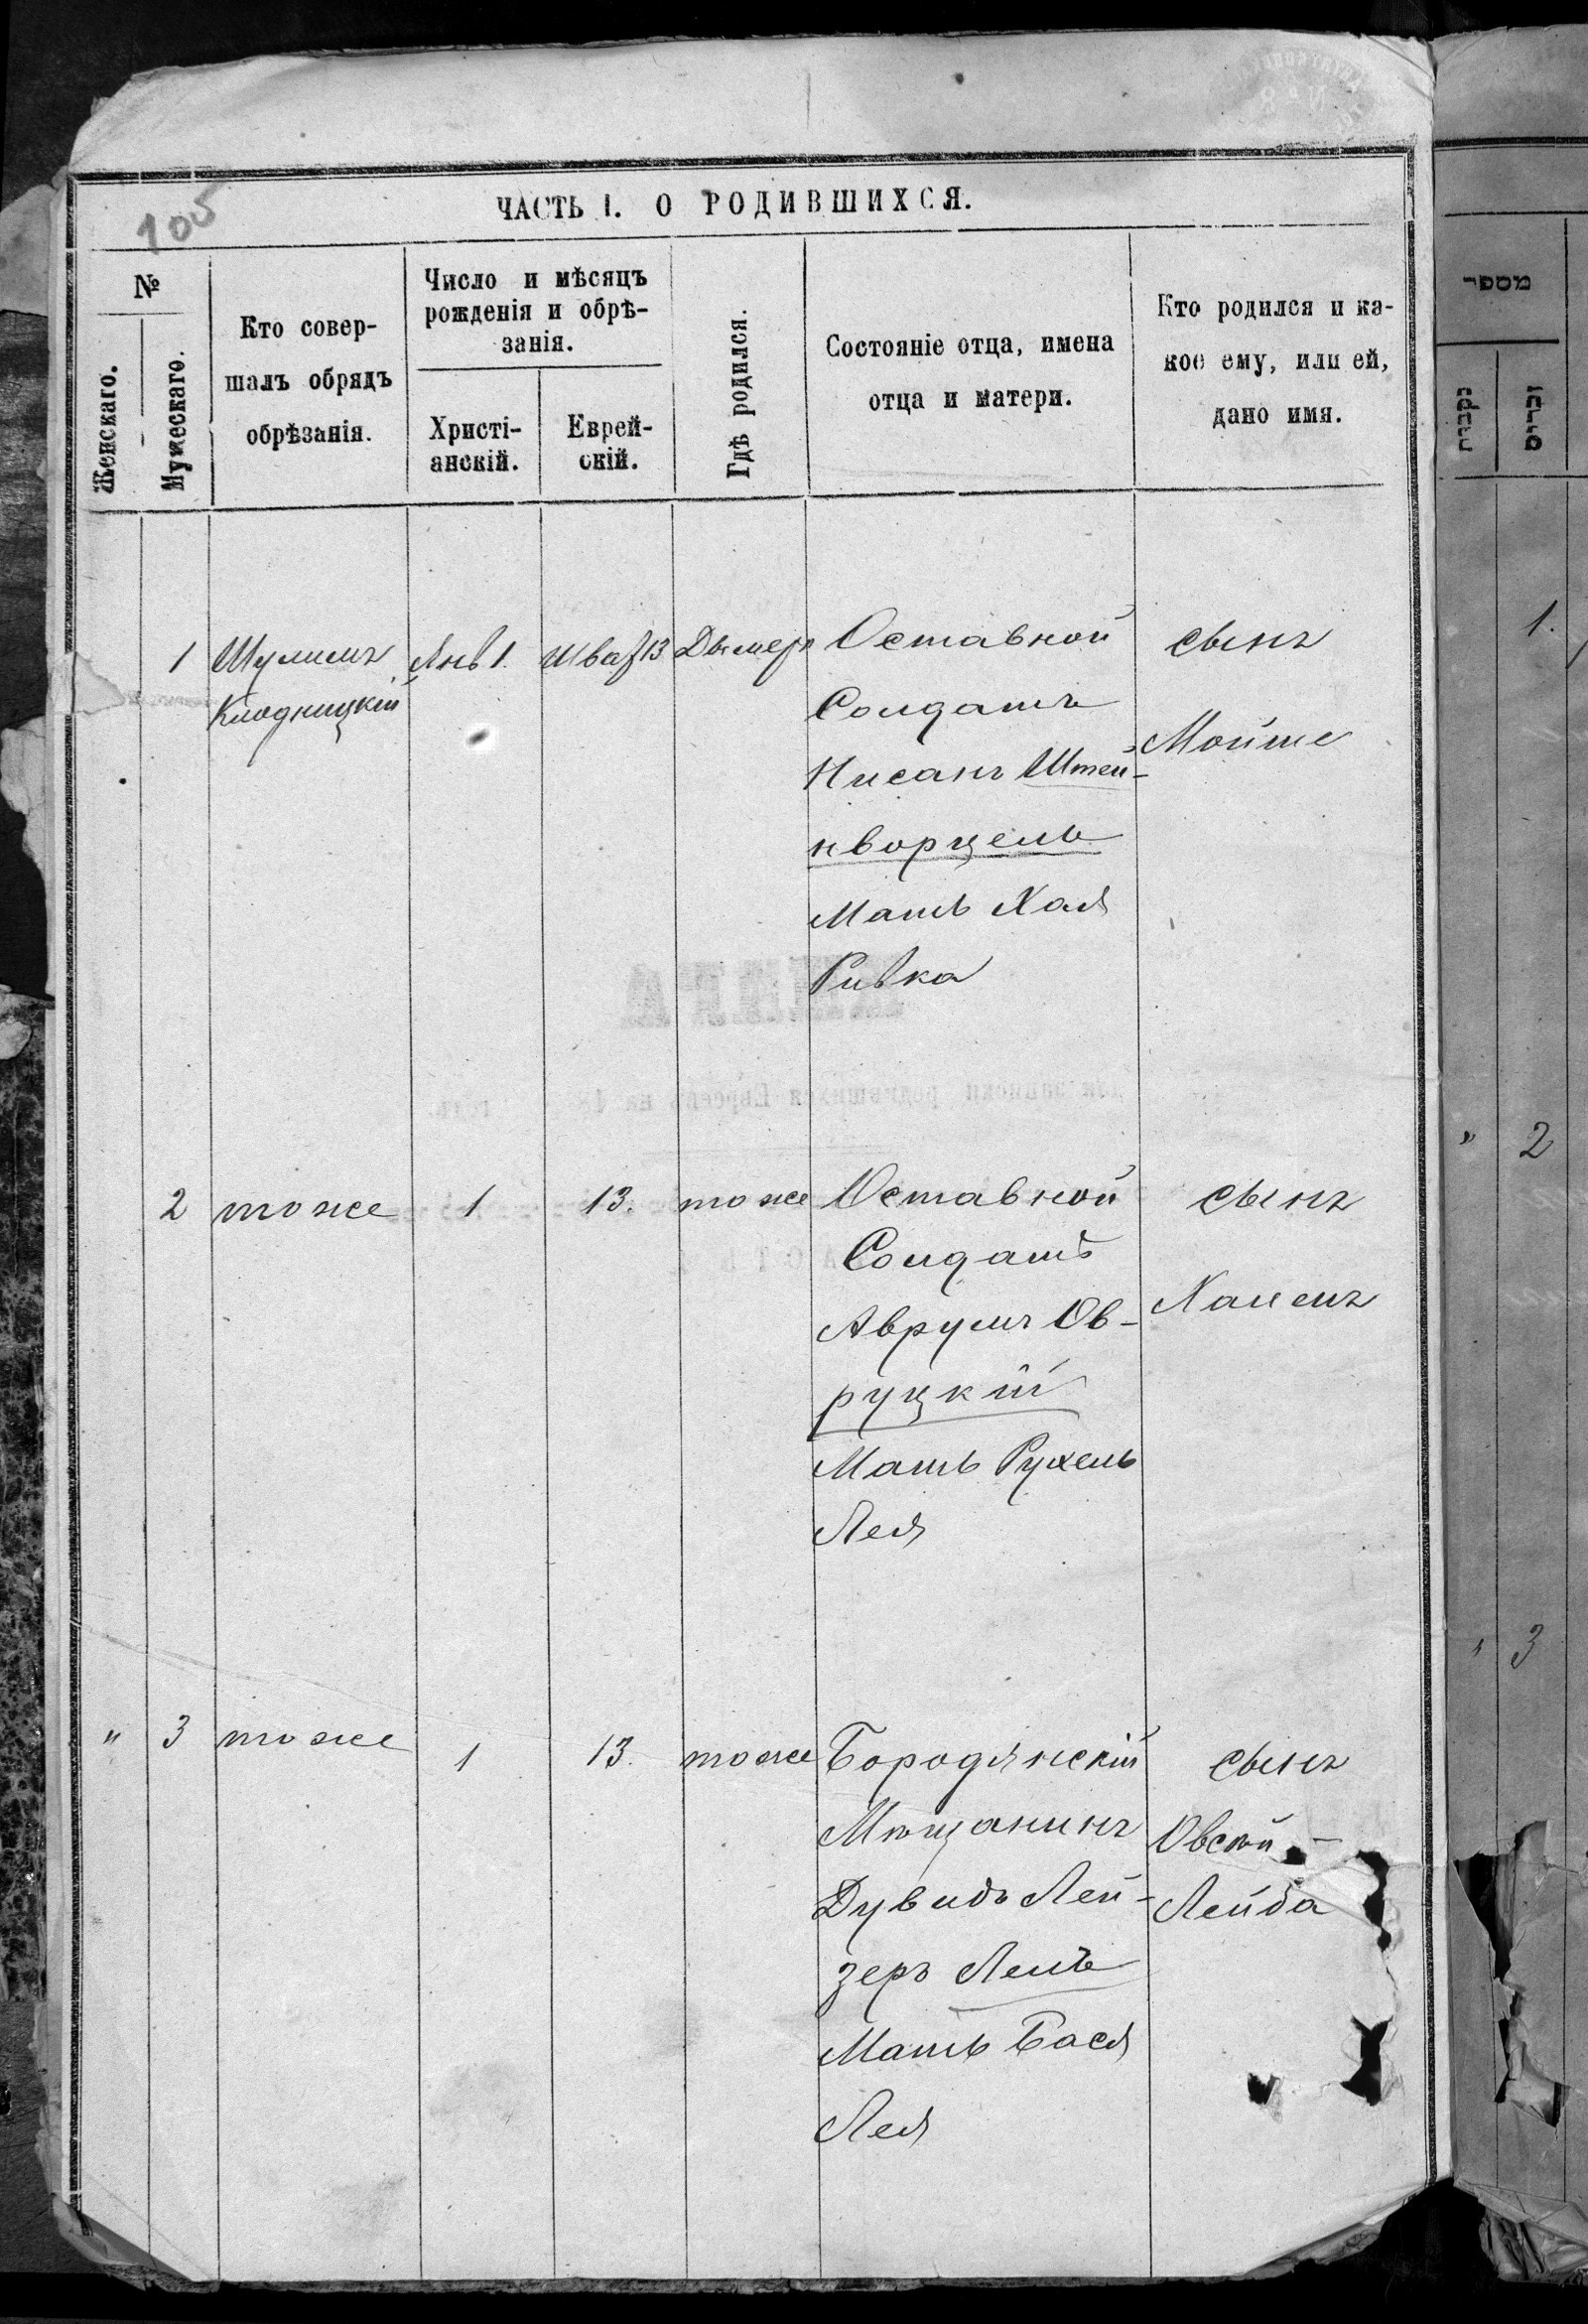 105
ЧАСТЬ I. О РОДИВШИХСЯ.
№
Женскаго.
Мужескаго.
Кто совер-
шалъ обрядъ
обрѣзанія.
Число и мѣсяцъ
рожденія и обрѣ-
занія.
Христі-
анскій.
Еврей-
скій.
Гдѣ родился.
Состояніе отца, имена
отца и матери.
Кто родился и ка-
кое ему, или ей,
дано имя.
1
Шулимъ
Клодницкій
Янв 1.
Шват 13
Дымеръ
Оставной
Солдатъ
Нисанъ Штей-
нворцель
Мать Хая
Ривка
сынъ
Мойше
2
тоже
1
13.
тоже
Оставной
Солдатъ
Аврумъ Ов-
руцкій
Мать Рухель
Лея
сынъ
Хаимъ
" 3
тоже
1
13.
тоже
Бородянскій
Мѣщанинъ
Дувидъ Лей-
зеръ
Мать Бася
Лея
сынъ
Овсій -
Лейба
מספר
נקבות
זכרים
1.
" 2
" 3